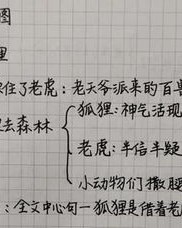 图
狸
住了老虎：老天爷派来的百兽
狐狸：神气活现
去森林
老虎：半信半疑
小动物们撒腿
：全文中心句—狐狸是借着老虎